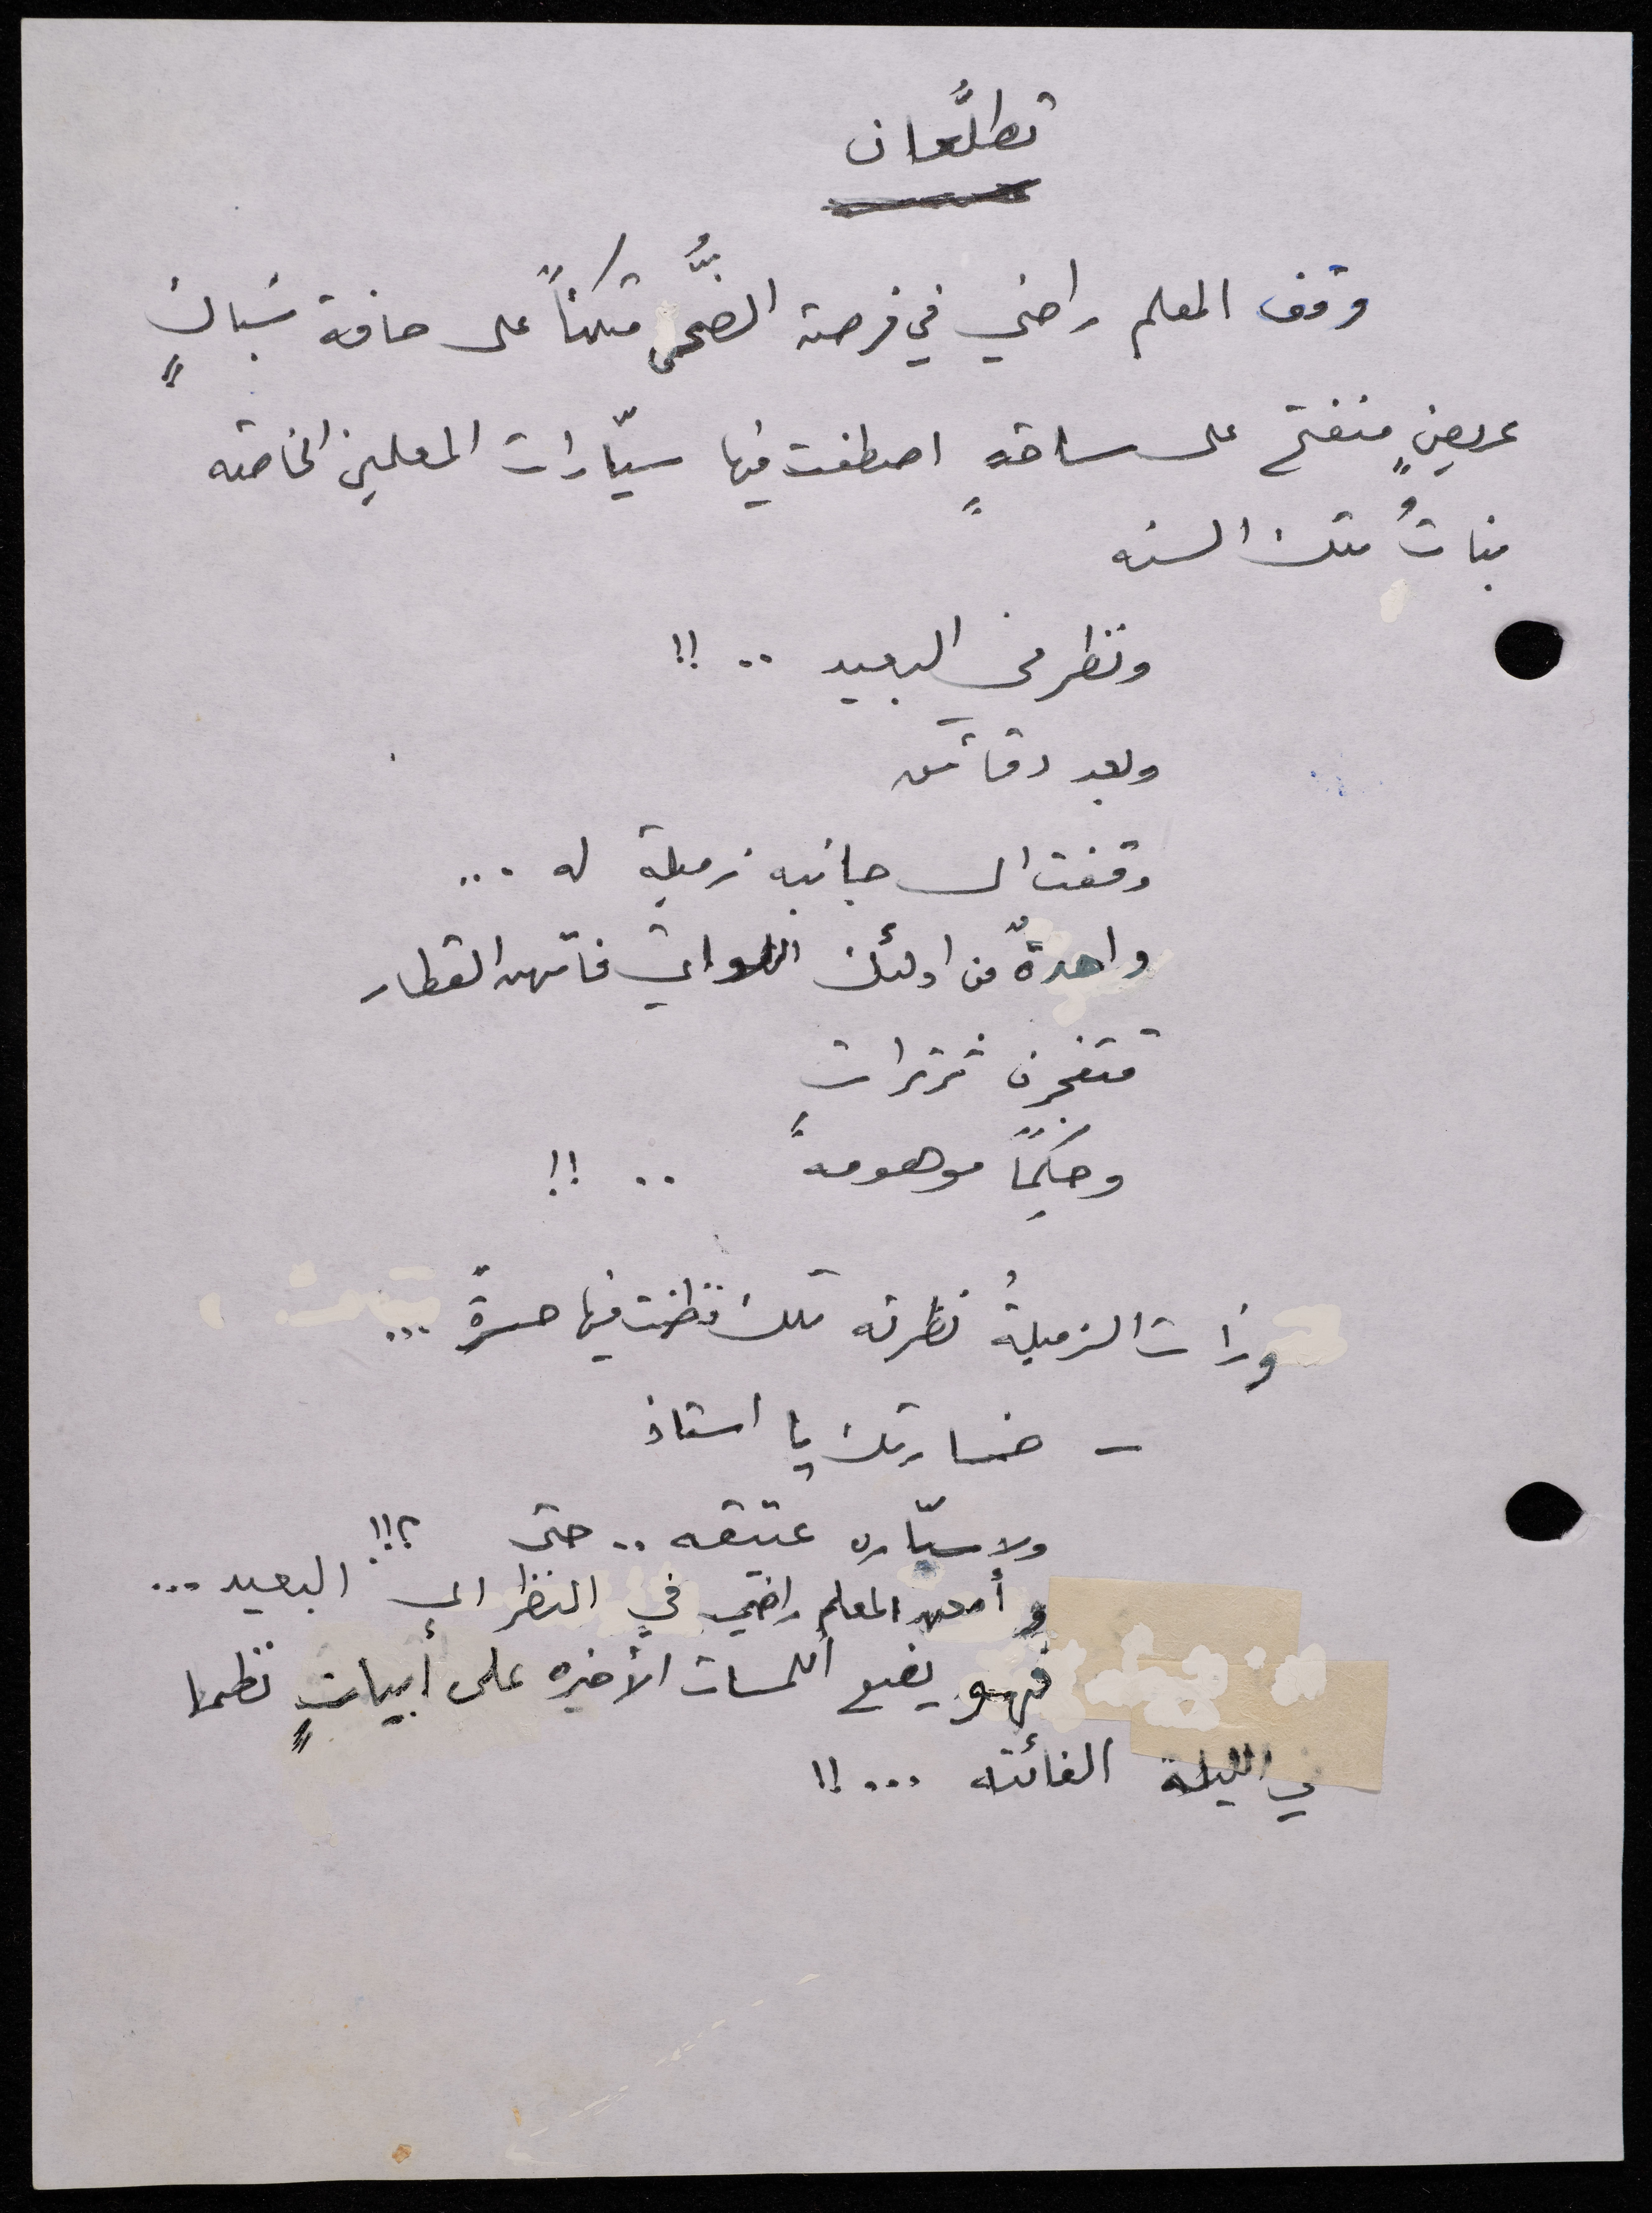 تطلُّعان
وقف المعلم راضي في فرصة الضُّحى متكئاً على حافة شباكٍ
عريضٍ منفتح على ساحةٍ اصطفت فيها سيّارات المعلمين الخاصه
بناتُ تلك السنه
ونظر في البعيد .. !!
وبعد دقائق
وقفت الى جانبه زميلة له ...
واحدةٌ من اولئك اللواتي فاتهن القطار
فتفجرن ثرثرات
وحِكَماً موهومةً .. !!
وزات الزميلةُ نظرته تلك فظنت فيها حسرةً ...
– خسارتك يا استاذ
ولا سيّاره عتيقه .. حتى ؟!!
وأمعن المعلم راضي في النظر الى البعيد ...
فهو يضع اللمسات الأخيره على أبياتٍ نظمها
في الليلة الفائته ... !!